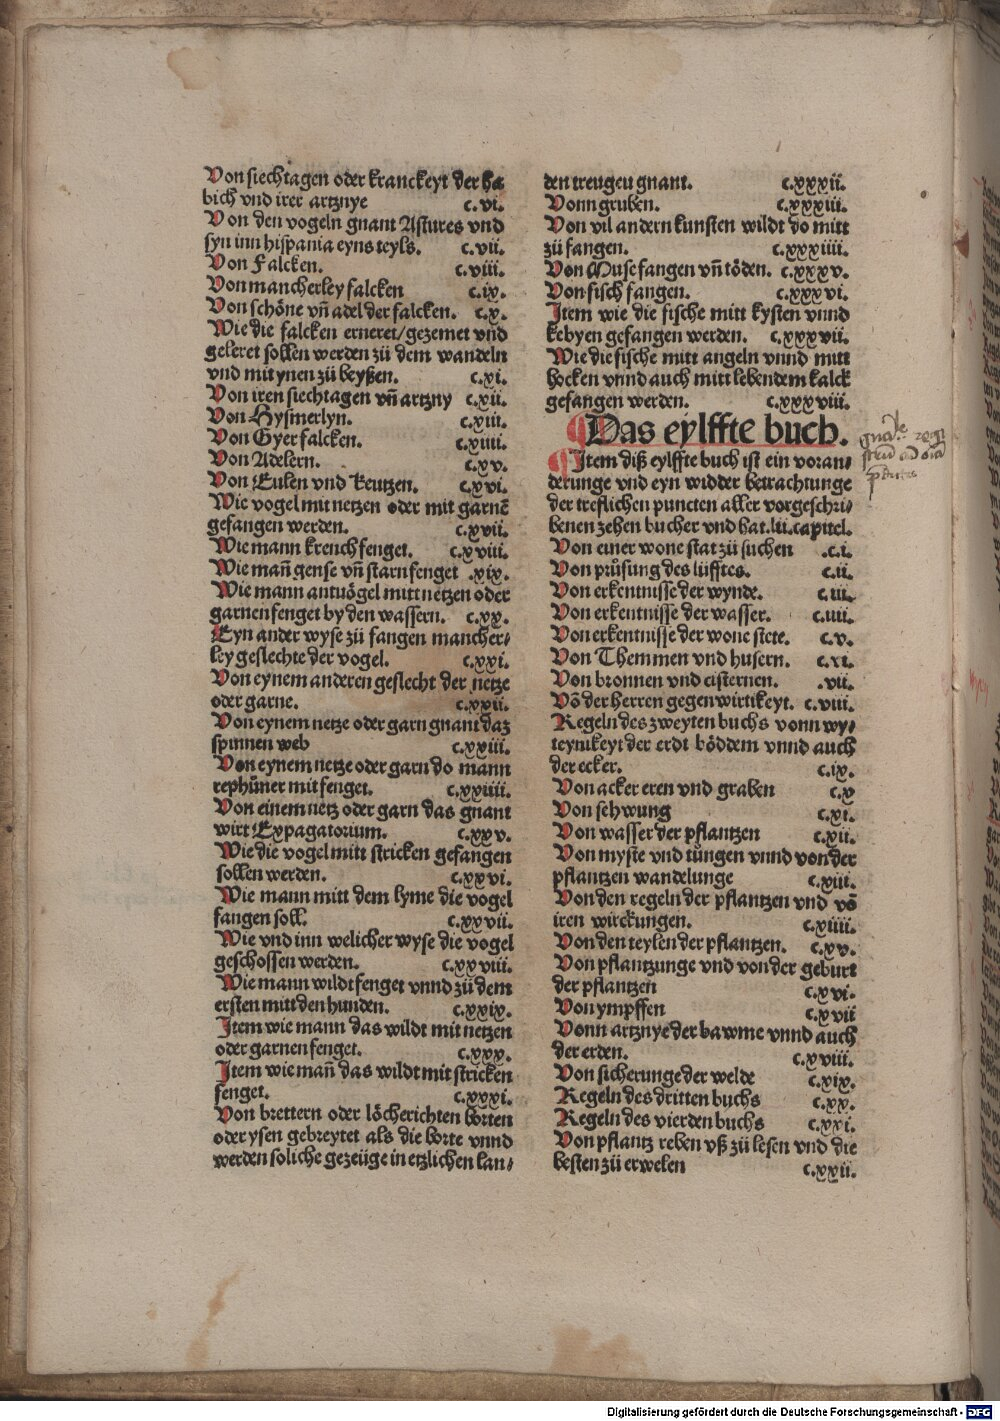 Von siechtagen oder kranckeyt der ha
bich vnd irer artznye c.vi.
Von den vogeln gnant Astures vnd
syn inn hispania eyns teyls. c.vii.
Von Falcken. c.viii.
Von mancherley falcken c.ix.
Von schöne vn̄ adel der falcken. c.x.
Wie die falcken erneret/gezemet vnd
geleret sollen werden zü dem wandeln
vnd mit ynen zü beyßen. c.xi.
Von iren siechtagen vn̄ artzny c.xii.
Von Sysmerlyn. c.xiii.
Von Gyerfalcken. c.xiiii.
Von Adelern. c.xv.
Von Eulen vnd Keutzen. c.xvi.
Wie vogel mit netzen oder mit garnē
gefangen werden. c.xvii.
Wie mann krench fenget. c.xviii.
Wie man̄ gense vn̄ starn fenget .xix.
Wie mann antuögel mitt netzen oder
garnen fenget by den wassern. c.xx.
Eyn ander wyse zü fangen mancher⸗
ley geslechte der vogel. c.xxi.
Von eynem anderen geslecht der netze
oder garne. c.xxii.
Von eynem netze oder garn gnant daz
spinnen web c.xxiii.
Von eynem netze oder garn do mann
rephüner mit fenget. c.xxiiii.
Von einem netz oder garn das gnant
wirt Expagatorium. c.xxv.
Wie die vogel mitt stricken gefangen
sollen werden. c.xxvi.
Wie mann mitt dem lyme die vogel
fangen soll. c.xxvii.
Wie vnd inn welicher wyse die vogel
geschossen werden. c.xxviii.
Wie mann wildt fenget vnnd zü dem
ersten mitt den hunden. c.xxix.
Item wie mann das wildt mit netzen
oder garnen fenget. c.xxx.
Item wie man̄ das wildt mit stricken
fenget. c.xxxi.
Von brettern oder löcherichten borten
oder ysen gebreytet als die borte vnnd
werden soliche gezeüge in etzlichen lan⸗
den treugeu gnant. c.xxxii.
Vonn gruben. c.xxxiii.
Von vil andern kunsten wildt do mitt
zü fangen. c.xxxiiii.
Von Muse fangen vn̄ töden. c.xxxv.
Von fisch fangen. c.xxxvi.
Item wie die fische mitt kysten vnnd
kebyen gefangen werden. c.xxxvii.
Wie die fische mitt angeln vnnd mitt
hocken vnnd auch mitt lebendem kalck
gefangen werden. c.xxxviii.
Das eylffte buch.
Item diß eylffte buch ist ein voran⸗
derunge vnd eyn widder betrachtunge
der treflichen puncten aller vorgeschri⸗
benen zehen bucher vnd hat.lii.capitel.
Von einer wone stat zü suchen .c.i.
Von prüfung des lüfftes. c.ii.
Von erkentnisse der wynde. c.iii.
Von erkentnisse der wasser. c.iiii.
Von erkentnisse der wone stete. c.v.
Von Themmen vnd husern. c.vi.
Von bronnen vnd cisternen. .vii.
Vō der herren gegenwirtikeyt. c.viii.
Regeln des zweyten buchs vonn wy⸗
teynikeyt der erdt böddem vnnd auch
der ecker. c.ix.
Von acker eren vnd graben c.x
Von sehwung c.xi.
Von wasser der pflantzen c.xii.
Von myste vnd tüngen vnnd von der
pflantzen wandelunge c.xiii.
Von den regeln der pflantzen vnd vō
iren wirckungen. c.xiiii.
Von den teylen der pflantzen. c.xv.
Von pflantzunge vnd von der geburt
der pflantzen c.xvi.
Von ympffen c.xvii
Vonn artznye der bawme vnnd auch
der erden. c.xviii.
Von sicherunge der welde c.xix.
Regeln des dritten buchs c.xx.
Regeln des vierden buchs c.xxi.
Von pflantz reben vß zü lesen vnd die
besten zü erwelen c.xxii.
Digitalisierung gefördert durch die Deutsche Forschungsgemeinschaft - DFG